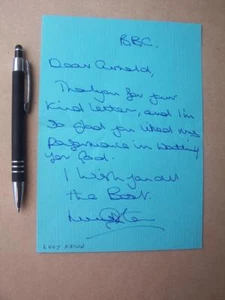 BBC.
Dear Arnold,
Thankyou for your
kind letter, and I'm
so glad you liked my
performance in Waiting
for God.
I wish you all
the Best.
LUCY ASTON